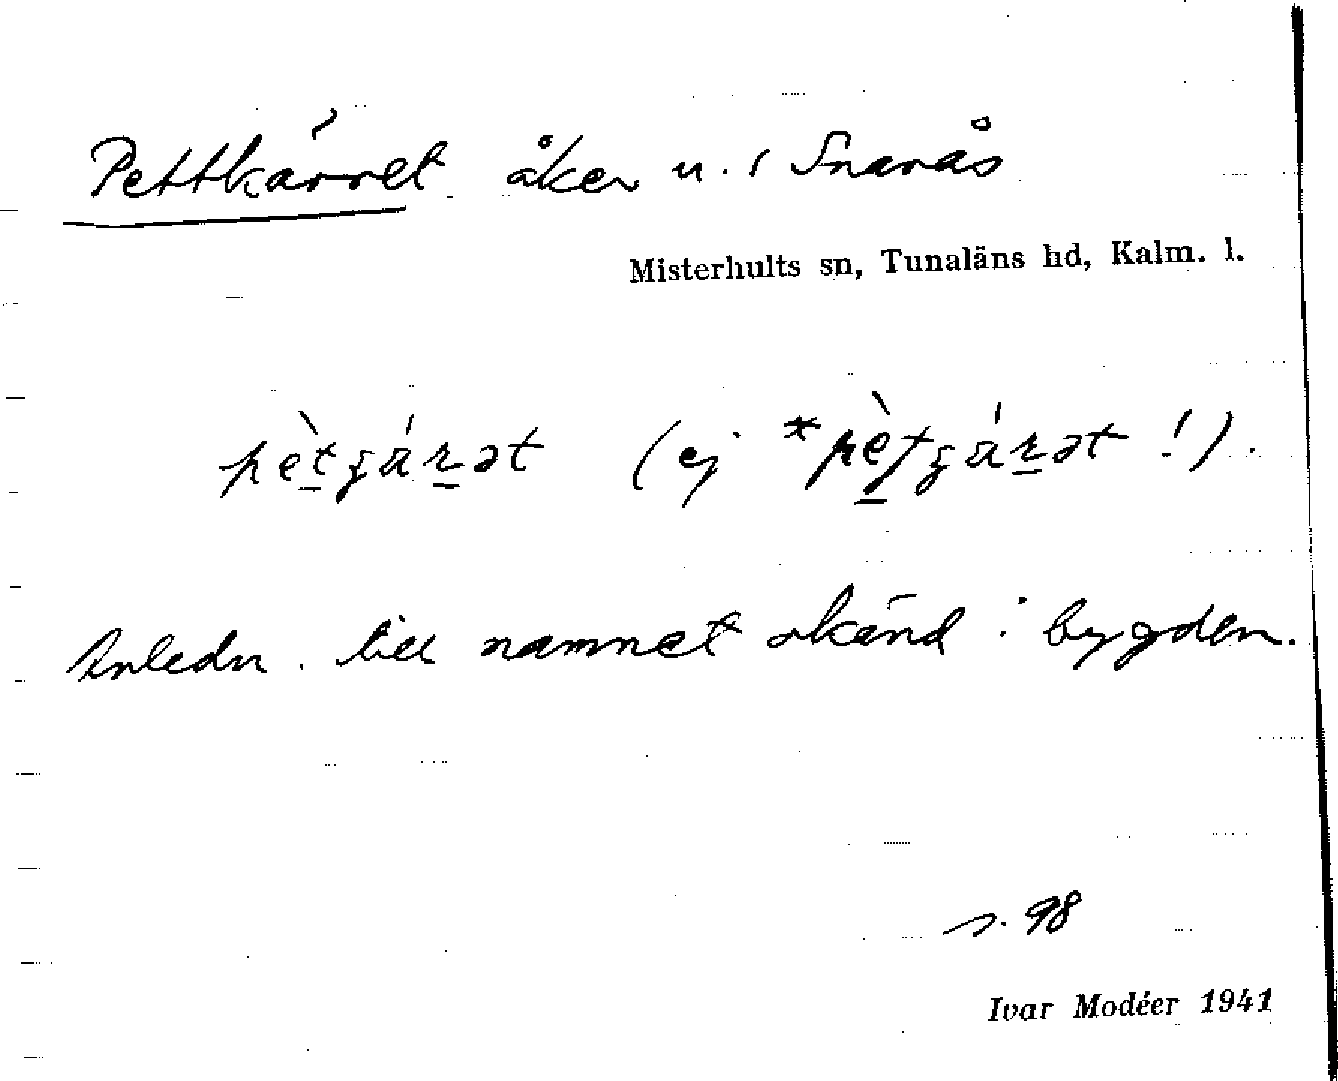 Pettkärret åker u. / Snarås
Misterhults sn, Tunaläns hd, Kalm. l.
(ej !).
Anledn. till namnet okänd i bygden.
s. 98
Ivar Modéer 1941